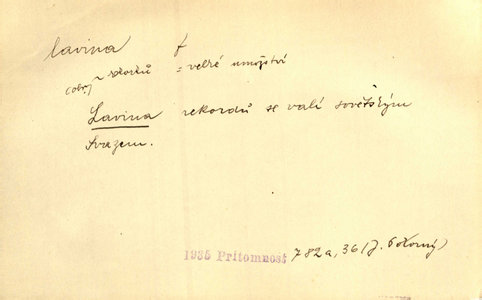 lavina f
(obr) ~ rekordů = velké množství
Lavina rekordů se valí sovětským
Svazem.
1935 Přítomnost 782a, 36 (J.